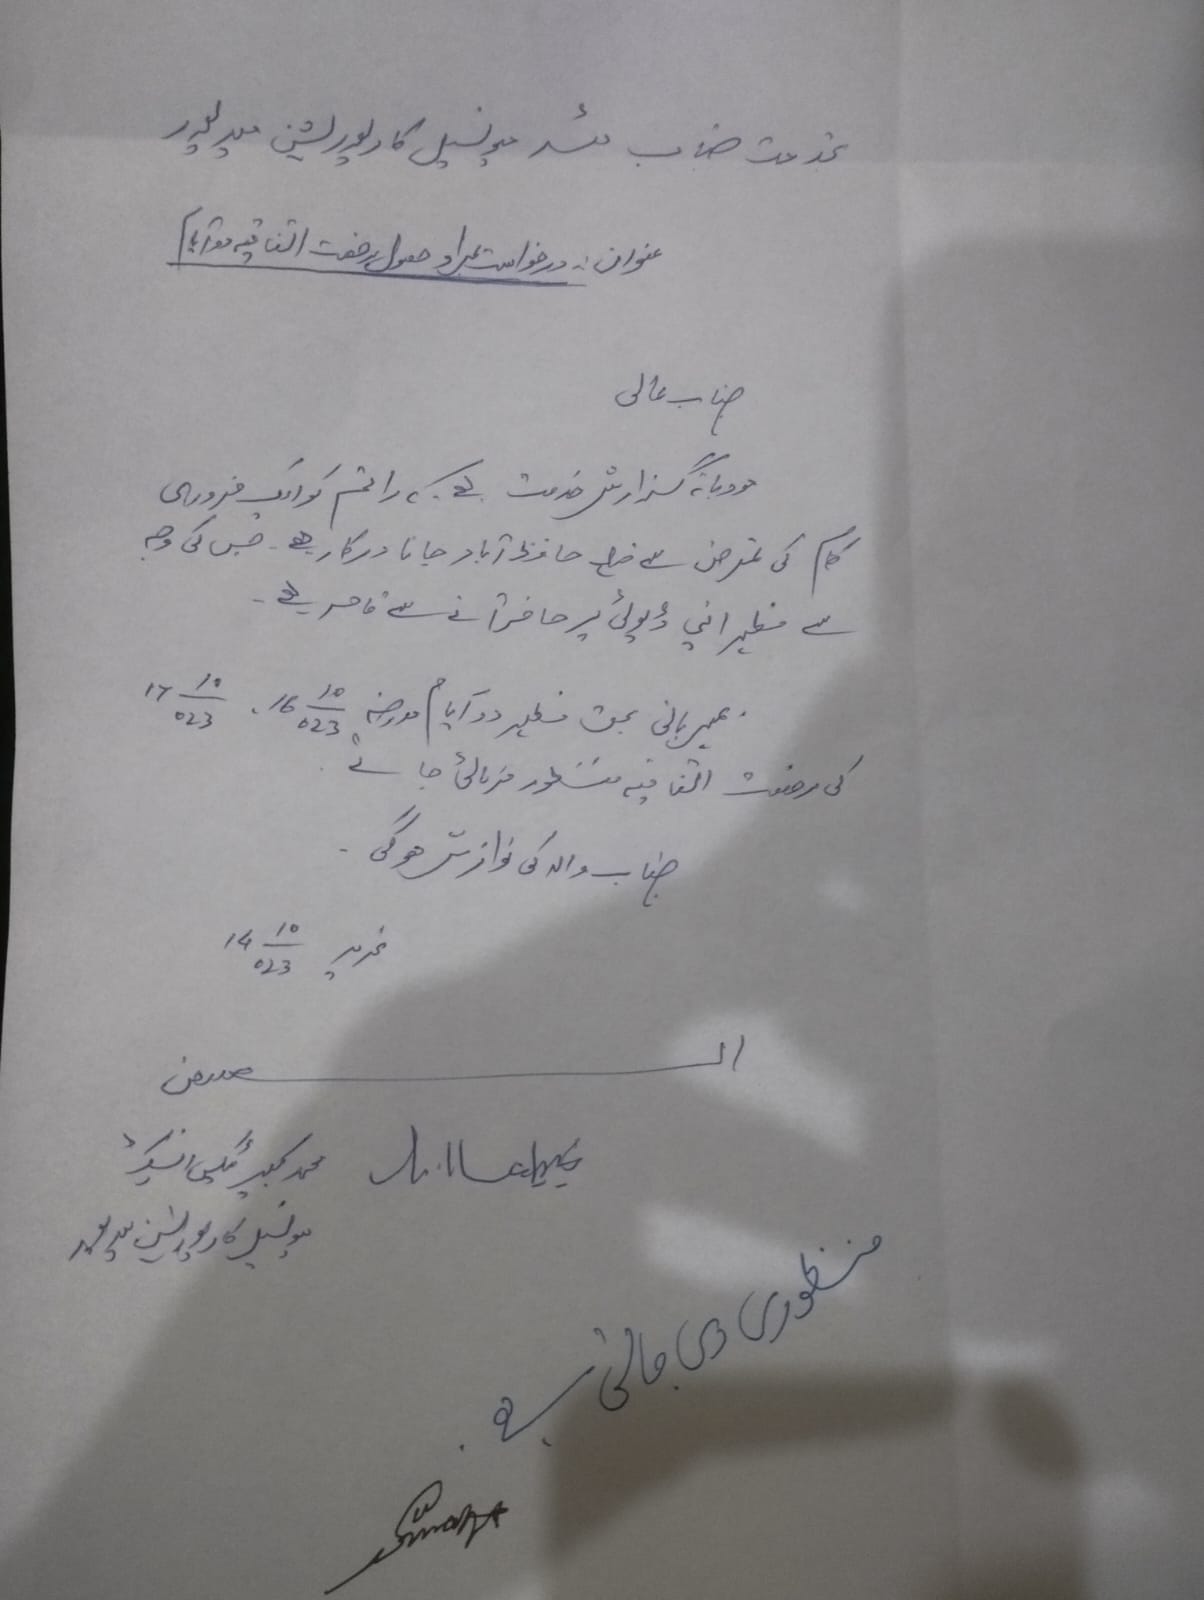 بخدمت جناب میئر میونسپل کارپوریشن میرپور
عنوان:۔ درخواست بمراد حصول رخصت اتفاقیہ دو آیام
جناب عالی
مودبانہ گزارش خدمت ہے کہ راقم کو ایک ضروری
کام کی غرض سے ضلع حافظ آباد جانا درکار ہے۔ جس کی وجہ
سے مظہر اپنی ڈیوٹی پر حاضر آنے سے قاصر ہے۔
مہربانی بحق مظہر دو آیام مورخہ 16 10/023 ، 17 10/023
کی رخصت اتفاقیہ منظور فرمائی جائے۔
جناب والہ کی نوازش ہو گی۔
تحریر 14 10/023
العـــــــارض
محمد کبیر انسپکٹر
میونسپل کارپوریشن میرپور
منظوری دی جاتی ہے۔